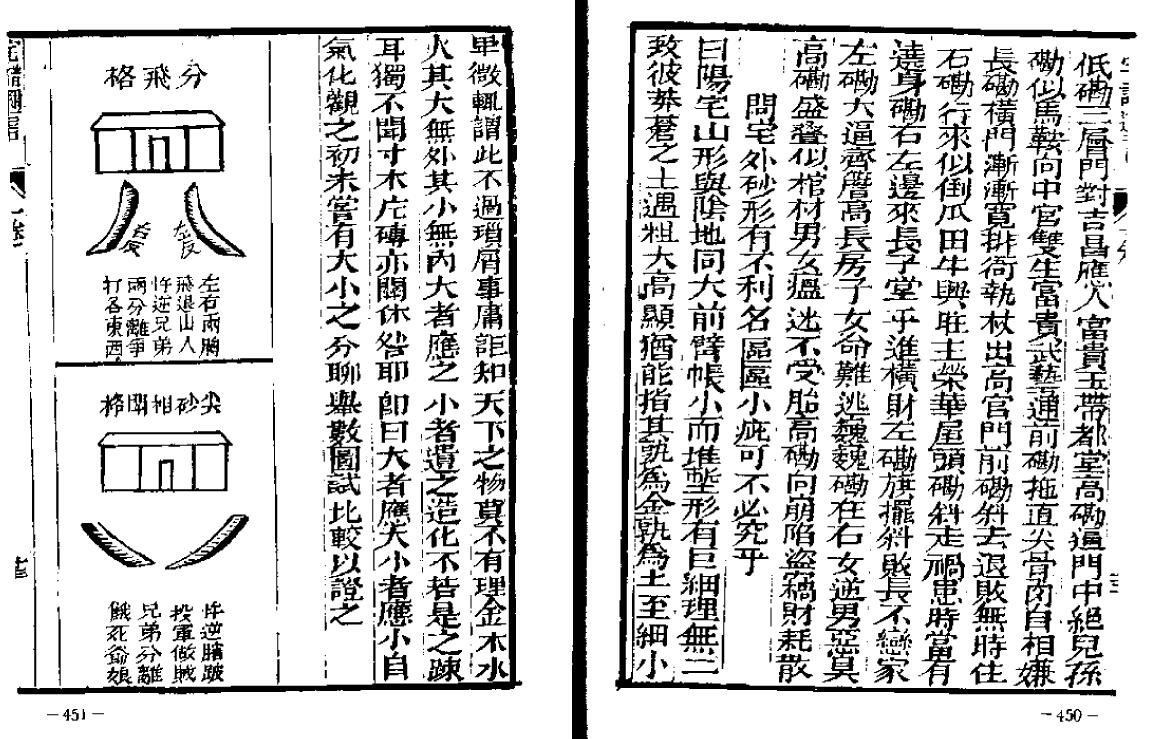 低磡三層門對吉昌應人富貴玉帶都堂高磡逼門中絕兒孫
磡似馬鞍向中宮雙生富貴武藝通前磡拖直尖骨肉自相嫌
長磡橫門漸漸寛排衙執杖出高官門前磡斜去退敗無時住
石磡行來似倒瓜田牛興旺主榮華屋頭磡斜走禍患時當有
遶身磡石左邊來長子堂乎進橫財左磡旗擺斜敗長不戀家
左磡大逼齊層高長房子女命難逃巍巍磡在右女逆男惡莫
高磡盛叠似棺材男女瘟迯不受胎高磡向崩陷盜竊財耗散
問宅外砂形有不利名區區小疵可不必究乎
曰陽宅山形與陰地同大前臂帳小而堆堲形有巨細理無二
致彼莽蒼之土遇粗大高顯猶能指其孰為金孰為土至細小
卑微輒謂此不過瑣屑事庸詎知天下之物莫不有理金木水
火其大無外其小無內大者應之小者遺之造化不若是之疎
耳獨不聞寸木片磚亦關休咎耶卽曰大者應大小者應小自
氣化觀之初未嘗有大小之分聊舉數圖試比較以證之
分飛格
左反
右反
左右兩膊
飛退山人
忤逆兄弟
兩分離爭
打各東西
尖砂相鬬格
忤逆膳跛
投軍做賊
兄弟分離
餓死爺娘
—450—
—451—